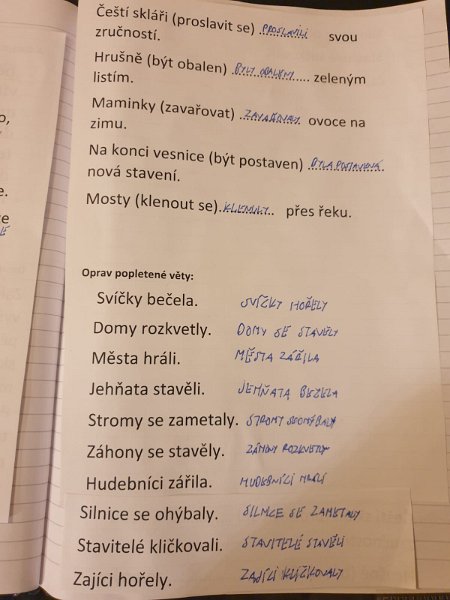 Čeští skláři (proslavit se) PROSLAVILI svou
zručností.
Hrušně (být obalen) BYLY OBALENY zeleným
listím.
Maminky (zavařovat) ZAVAŘOVALY ovoce na
zimu.
Na konci vesnice (být postaven) BYLA POSTAVENA
nová stavení.
Mosty (klenout se) KLENULY přes řeku.
Oprav popletené věty:
Svíčky bečela. SVÍČKY HOŘELY
Domy rozkvetly. DOMY SE STAVĚLY
Města hráli. MĚSTA ZÁŘILA
Jehňata stavěli. JEHŇATA BEČELA
Stromy se zametaly. STROMY SE OHÝBALY
Záhony se stavěly. ZÁHONY ROZKVETLY
Hudebníci zářila. HUDEBNÍCI HRÁLI
Silnice se ohýbaly. SILNICE SE ZAMETALY
Stavitelé kličkovali. STAVITELÉ STAVĚLI
Zajíci hořely. ZAJÍCI KLIČKOVALY